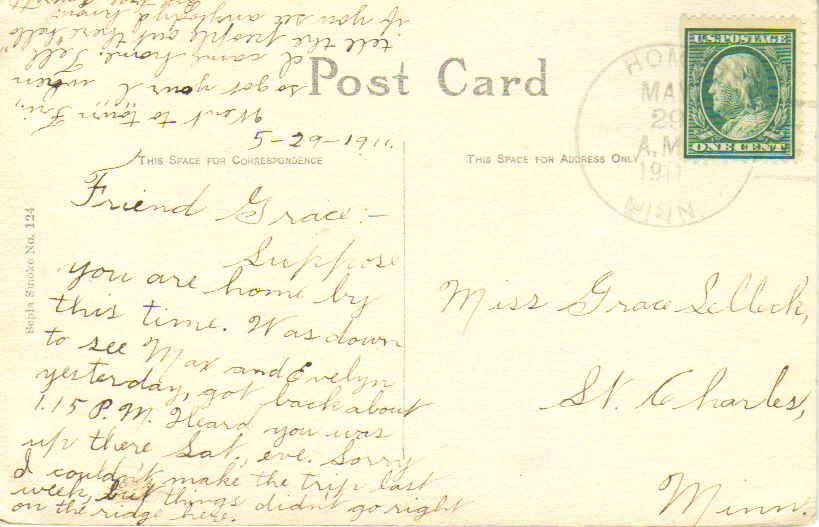 Post Card
U.S. POSTAGE
ONE CENT
MAY
29
A.M.
1911
MINN.
THIS SPACE FOR CORRESPONDENCE
THIS SPACE FOR ADDRESS ONLY
Sepia Smoke No. 124
5-29-1911.
Friend Grace:-
Suppose
you are home by
this time. Was down
to see Max and Evelyn
yesterday, got back about
1.15 P.M. Heard you was
up there Sat. eve. Sorry
I couldn't make the trip last
week, but things didn't go right
on the ridge here.
Went to town Fri,
so got your L when
I came home. Tell
tell the people out there "hello"
if you see anybody I know.
Miss Grace Selleck,
St. Charles,
Minn.